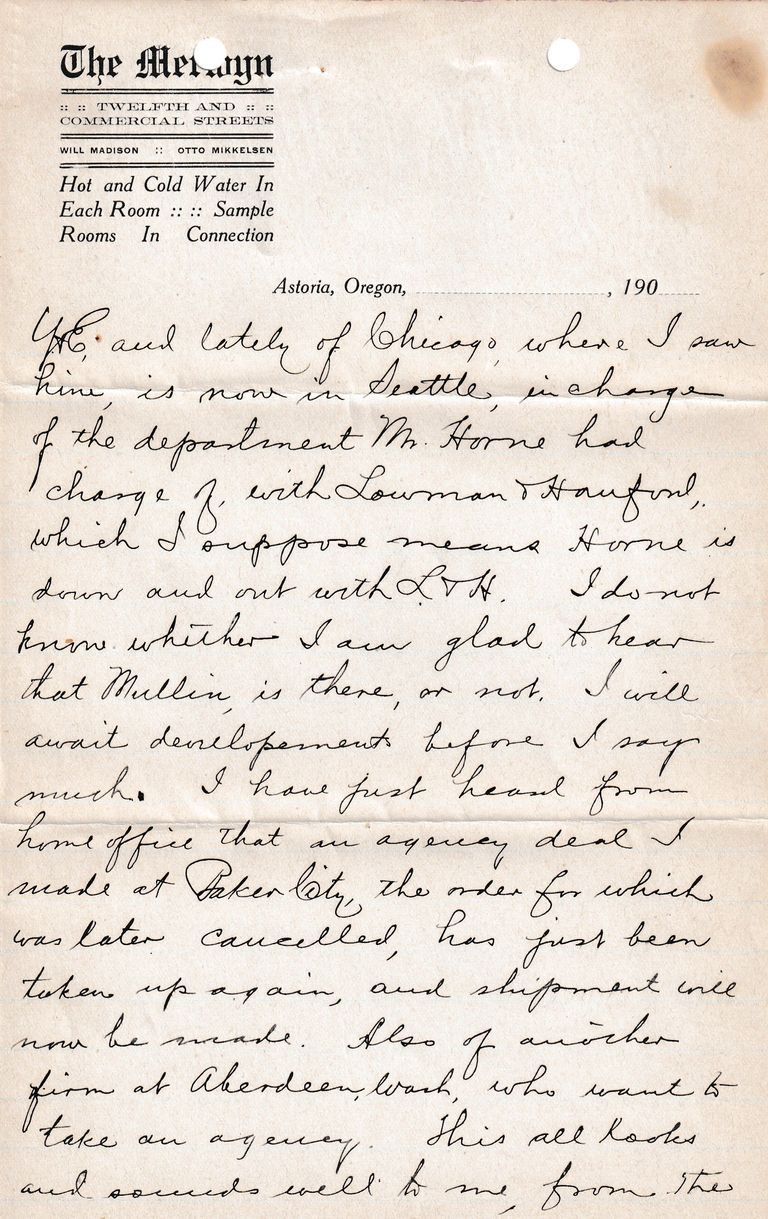 The Merwyn
:: :: TWELFTH AND :: ::
COMMERCIAL STREETS
WILL MADISON :: OTTO MIKKELSEN
Hot and Cold Water In
Each Room :: :: Sample
Rooms In Connection
Astoria, Oregon, , 190
and lately of Chicago, where I saw
him, is now in Seattle, in charge
of the department Mr. Horne had
charge of, with Lowman & Hanford,
which I suppose means Horne is
down and out with L. & H. I do not
know whether I am glad to hear
that Mullin, is there, or not. I will
await developements before I say
much. I have just heard from
home office that an agency deal I
made at Baker City, the order for which
was later cancelled, has just been
taken up again, and shipment will
now be made. Also of another
firm at Aberdeen, Wash, who want to
take an agency. This all looks
and sounds well to me, from the